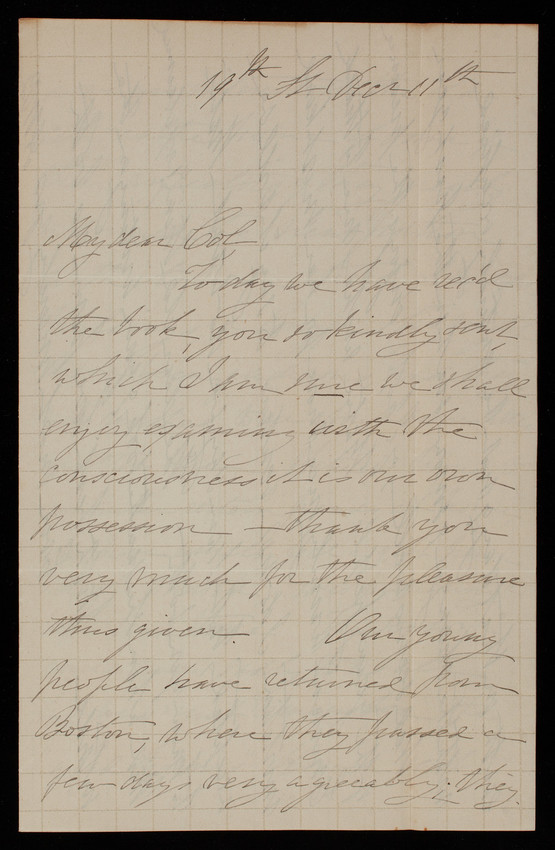 19th St Decr 11th
My dear Col,
To day we have rec'd
the book, you so kindly sent,
which I am sure we shall
enjoy examining with the
consciousness it is our own
possession – thank you
very much for the pleasure
thus given. Our young
people have returned from
Boston, where they passed a
few days very agreeably; they